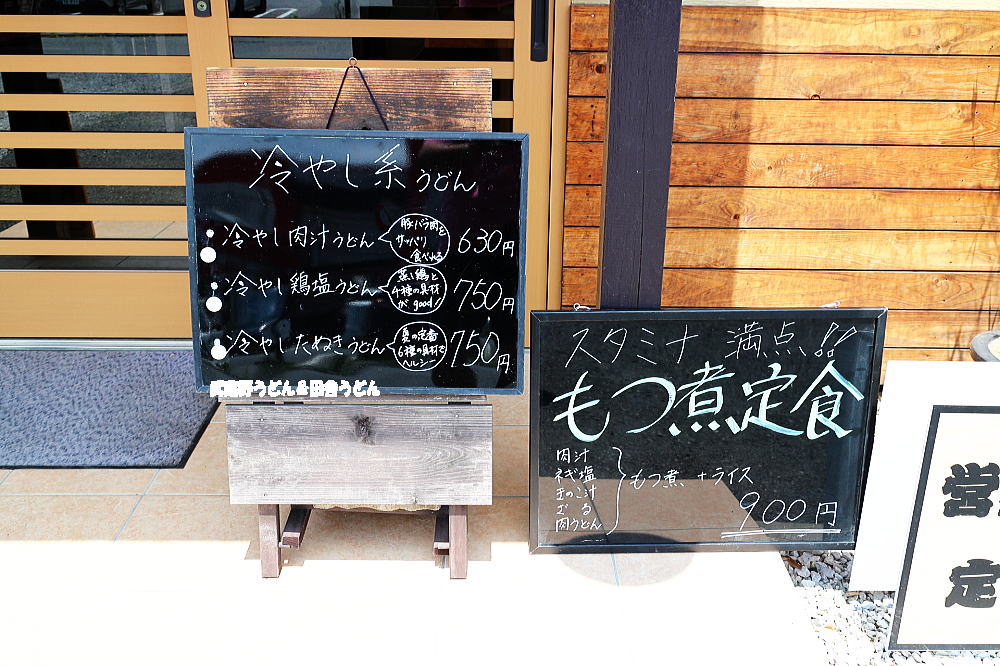 冷やし系うどん
冷やし肉汁うどん
豚バラ肉を
サッパリ
食べれる
630円
冷やし鶏塩うどん
蒸し鶏と
4種の具材
が good!!
750円
冷やしたぬきうどん
真の定番
6種の具材で
ヘルシー
750円
武蔵野うどん&田舎うどん
スタミナ 満点!!
もつ煮定食
肉汁
ネギ塩
きのこ汁
ざる
肉うどん
もつ煮 +ライス
900円
営
定